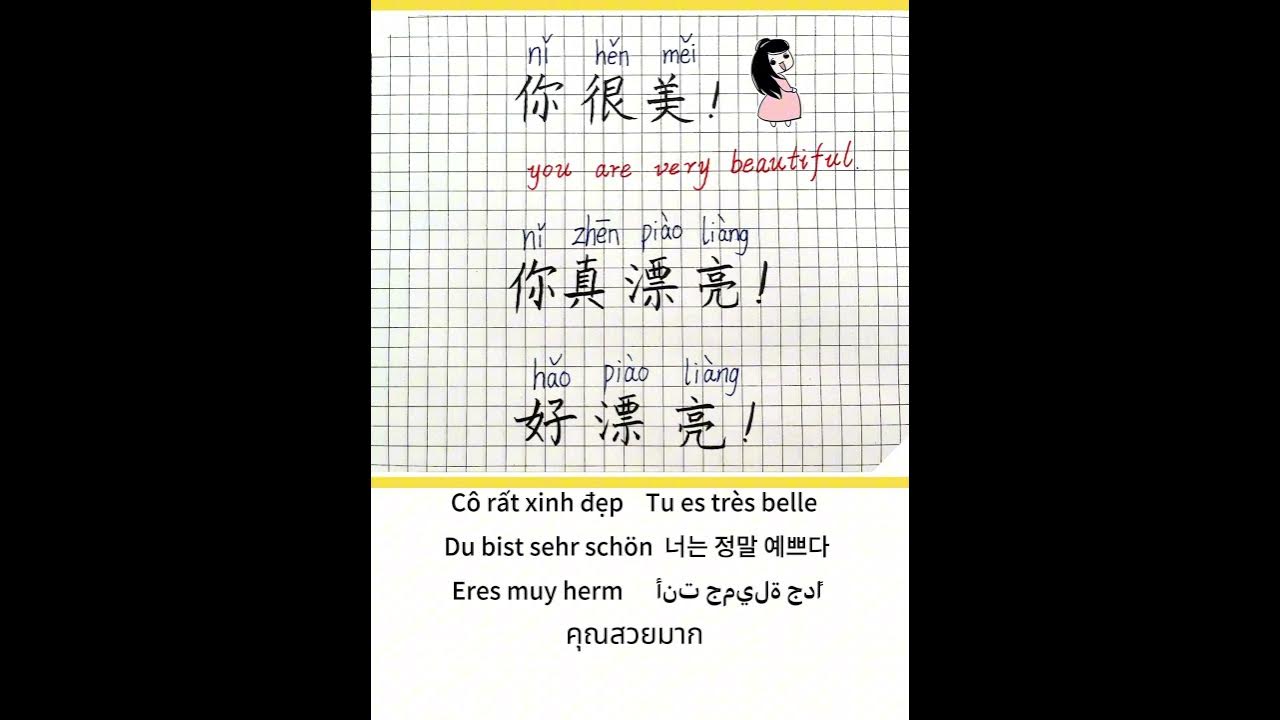 nǐ hěn měi
你很美!
you are very beautiful.
nǐ zhēn piào liàng
你真漂亮!
hǎo piào liàng
好漂亮!
Cô rất xinh đẹp Tu es très belle
Du bist sehr schön 너는 정말 예쁘다
Eres muy herm أدج ةليمج تنأ
คุณสวยมาก